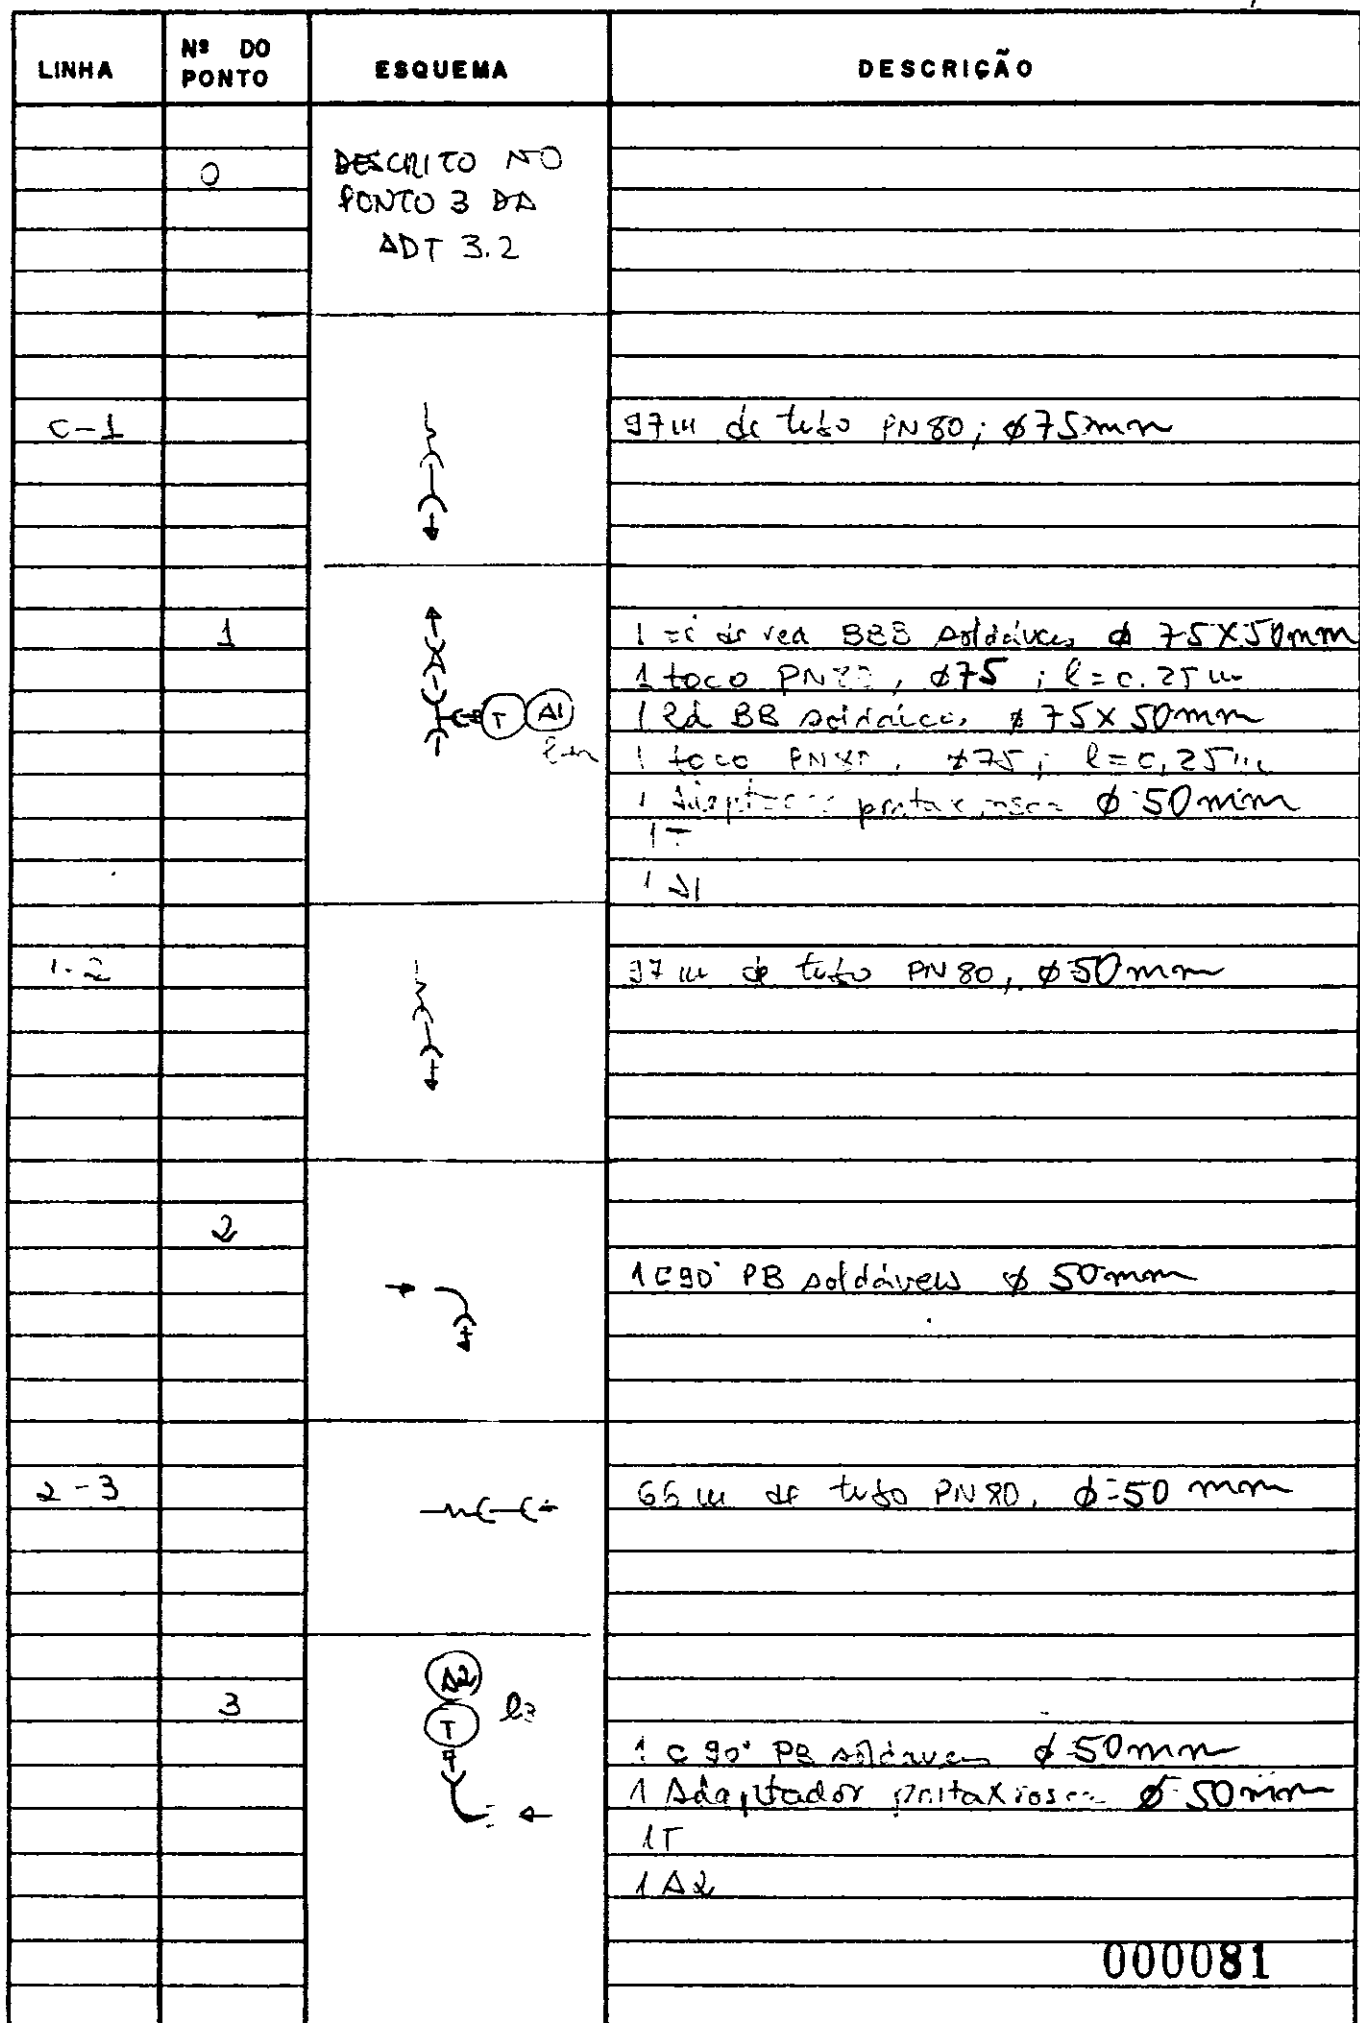 LINHA
Nº DO PONTO
ESQUEMA
DESCRIÇÃO
0
DESCRITO NO
PONTO 3 DA
ADT 3.2
0-1
97 m de tubo PN 80; ø 75mm
1
1 tê de red BBB soldáveis ø 75X50mm
1 toco PN80, ø75; l=0.25 m
1 Rd BB soldáveis ø 75X50mm
1 toco PN80, ø75; l=0,25m
1 Adaptador pontaxrosca ø 50mm
1T
1 A1
T A1
1-2
97 m de tubo PN 80, ø 50mm
2
1 C90° PB soldáveis ø 50mm
2-3
66 m de tubo PN 80, ø=50 mm
A2
T
3
1 C 90° PB soldáveis ø 50mm
1 Adaptador pontaxrosca ø 50mm
1T
1 A2
000081